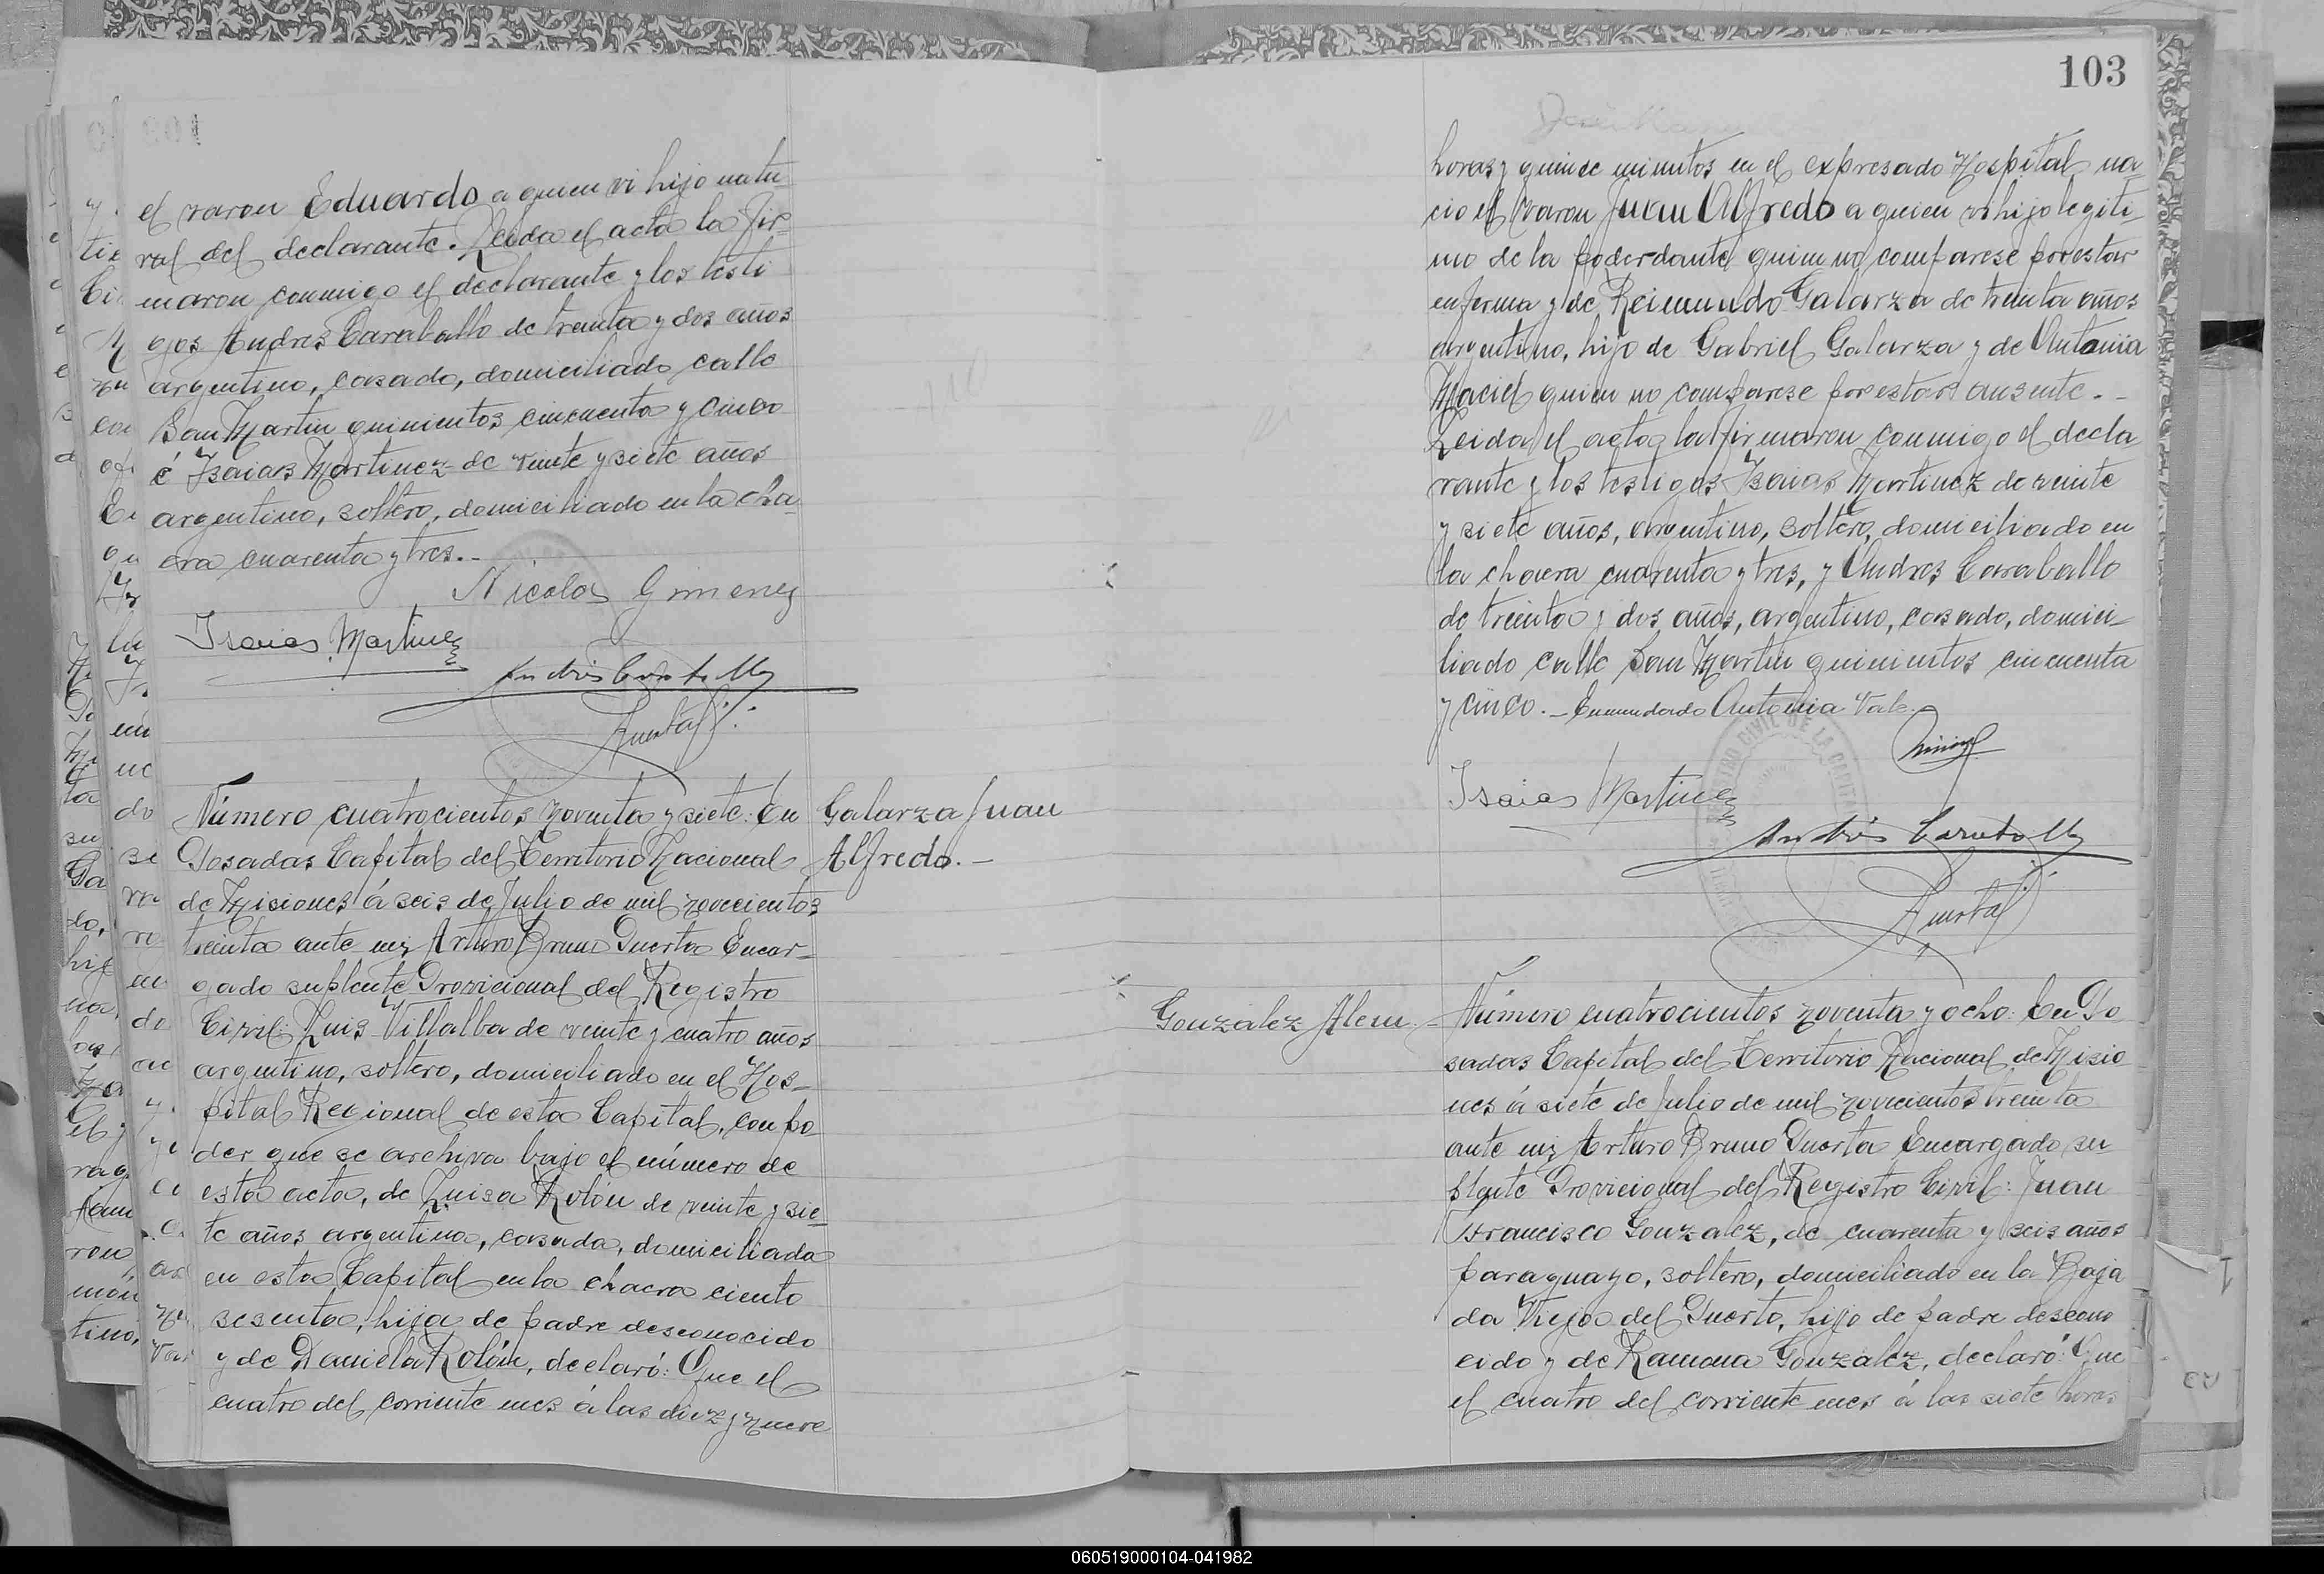 el varon Eduardo a quien vi hijo natu-
ral del declarante. Leida el acta la fir-
maron conmigo el declarante y los testi
gos Andres Caraballo de treinta y dos años
argentino, casado, domiciliado calle
San Martin quinientos cincuenta y cinco
é Isaias Martinez de veinte y siete años
argentino, soltero, domiciliado en la cha-
cra cuarenta y tres.-
Nicolas Gimenez
Isaias Martinez
Andrés Caraballo
Número cuatrocientos noventa y siete: En
Posadas Capital del Territorio Nacional
de Misiones á seis de Julio de mil novecientos
treinta ante mi, Arturo Bruno Puerta Encar-
gado suplente Provicional del Registro
Civil: Luis Villalba de veinte y cuatro años
argentino, soltero, domiciliado en el Hos-
pital Regional de esta Capital, con po-
der que se archiva bajo el número de
esta acta, de Luisa Rolón de veinte y sie-
te años argentina, casada, domiciliada
en esta Capital en la chacra ciento
sesenta, hija de padre desconocido
y de Daniela Rolón, declaró: Que el
cuatro del corriente mes á las diez y nueve
Galarza Juan
Alfredo.-
103
horas y quince minutos en el expresado Hospital na-
cio el varon Juan Alfredo a quien vi hijo legiti-
mo de la poderdante quien no comparese por estar
enferma y de Reimundo Galarza de treinta años
argentino, hijo de Gabriel Galarza y de Antonia
Maciel quien no comparese por estar ausente.-
Leida el acta la firmaron conmigo el decla
rante y los testigos Isaias Martinez de veinte
y siete años, argentino, soltero, domiciliado en
la chacra cuarenta y tres, y Andres Caraballo
de treinta y dos años, argentino, casado, domici-
liado calle San Martin quinientos cincuenta
y cinco.- Enmendado Antonia Vale.
Isaias Martinez
Andrés Caraballo
Gonzalez Alem.-
Número cuatrocientos noventa y ocho: En Po
sadas Capital del Territorio Nacional de Misio
nes á siete de Julio de mil novecientos treinta
ante mi, Arturo Bruno Puerta Encargado su
plente Provicional del Registro Civil: Juan
Francisco Gonzalez, de cuarenta y seis años
paraguayo, soltero, domiciliado en la Baja
da Vieja del Puerto, hijo de padre descono
cido y de Ramona Gonzalez, declaró: Que
el cuatro del corriente mes á las siete horas
060519000104-041982